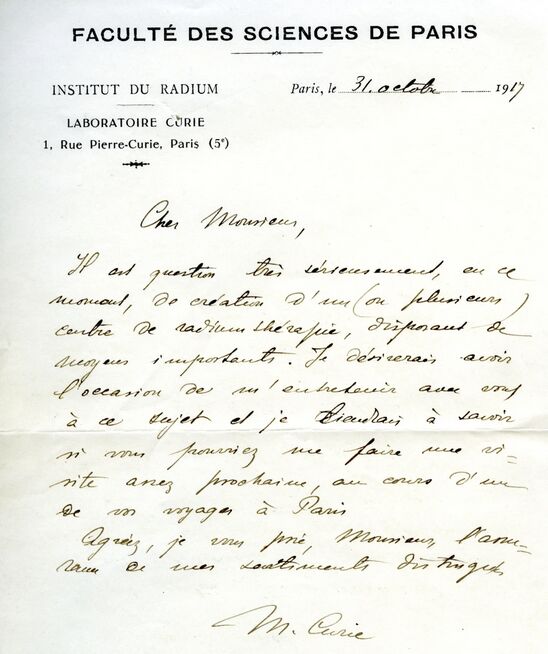 FACULTÉ DES SCIENCES DE PARIS
INSTITUT DU RADIUM
Paris, le 31. octobre 1917
LABORATOIRE CURIE
1, Rue Pierre-Curie, Paris (5e)
Cher Monsieur,
Il est question très sérieusement, en ce
moment, de création d'un (ou plusieurs)
centre de radiumthérapie, disposant de
moyens importants. Je désirerais avoir
l'occasion de m'entretenir avec vous
à ce sujet et je tiendrais à savoir
si vous pourriez me faire une vi-
site assez prochaine, au cours d'un
de vos voyages à Paris
Agréez, je vous prie, Monsieur, l'assu-
rance de mes sentiments distingués
M. Curie